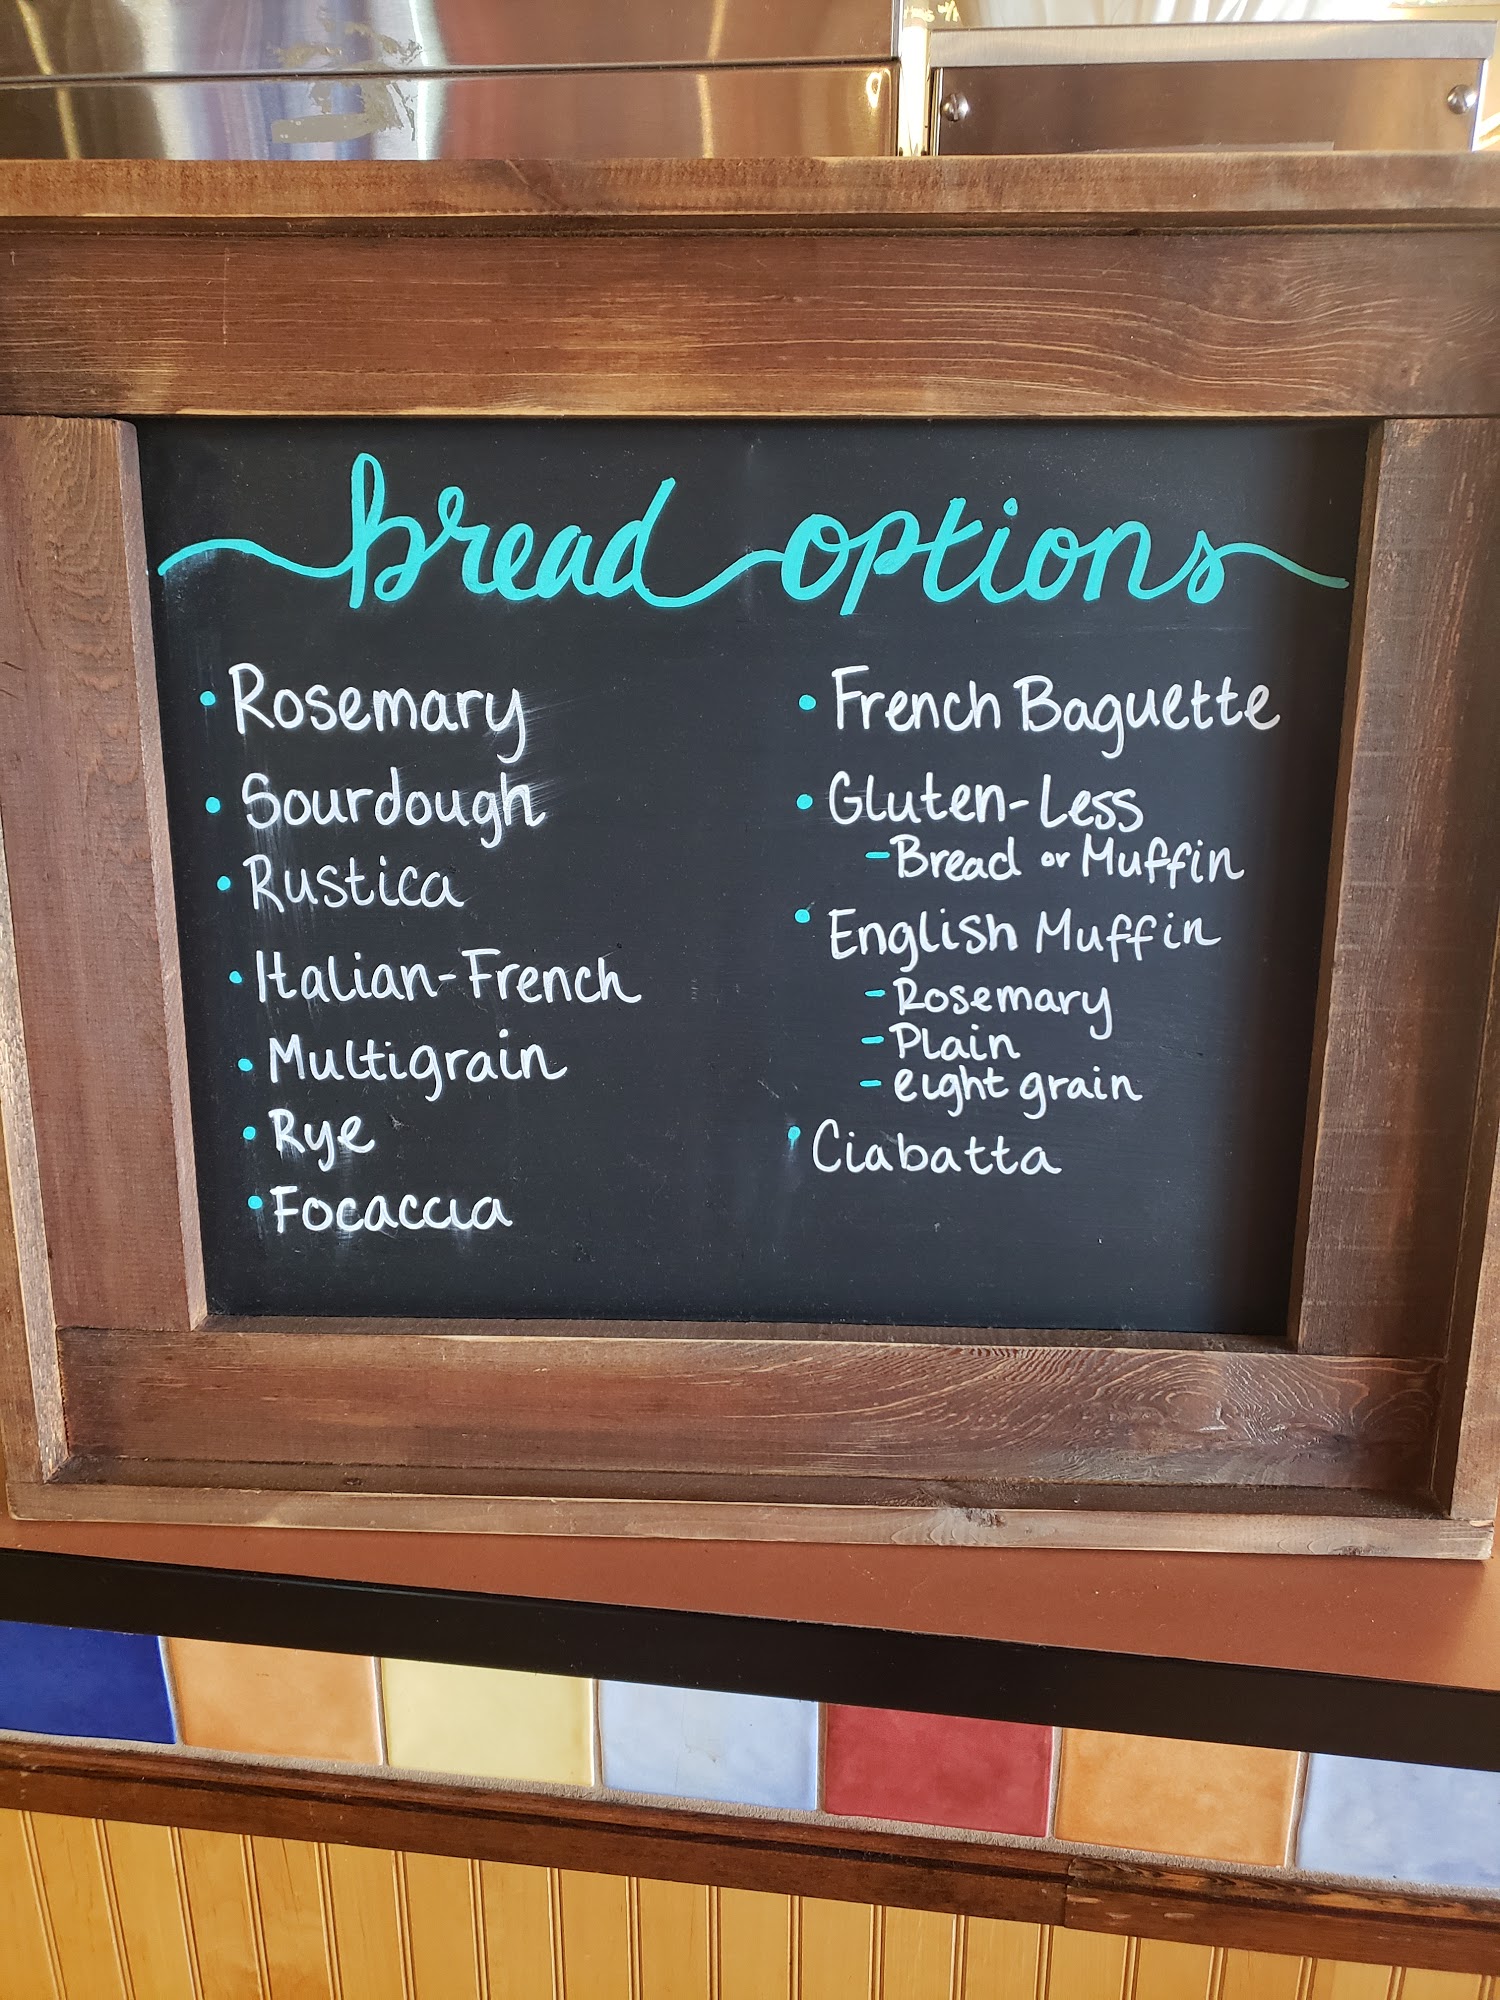 bread options
• Rosemary
• Sourdough
• Rustica
• Italian-French
• Multigrain
• Rye
• Focaccia
• French Baguette
• Gluten-Less
- Bread or Muffin
• English Muffin
- Rosemary
- Plain
- eight grain
• Ciabatta